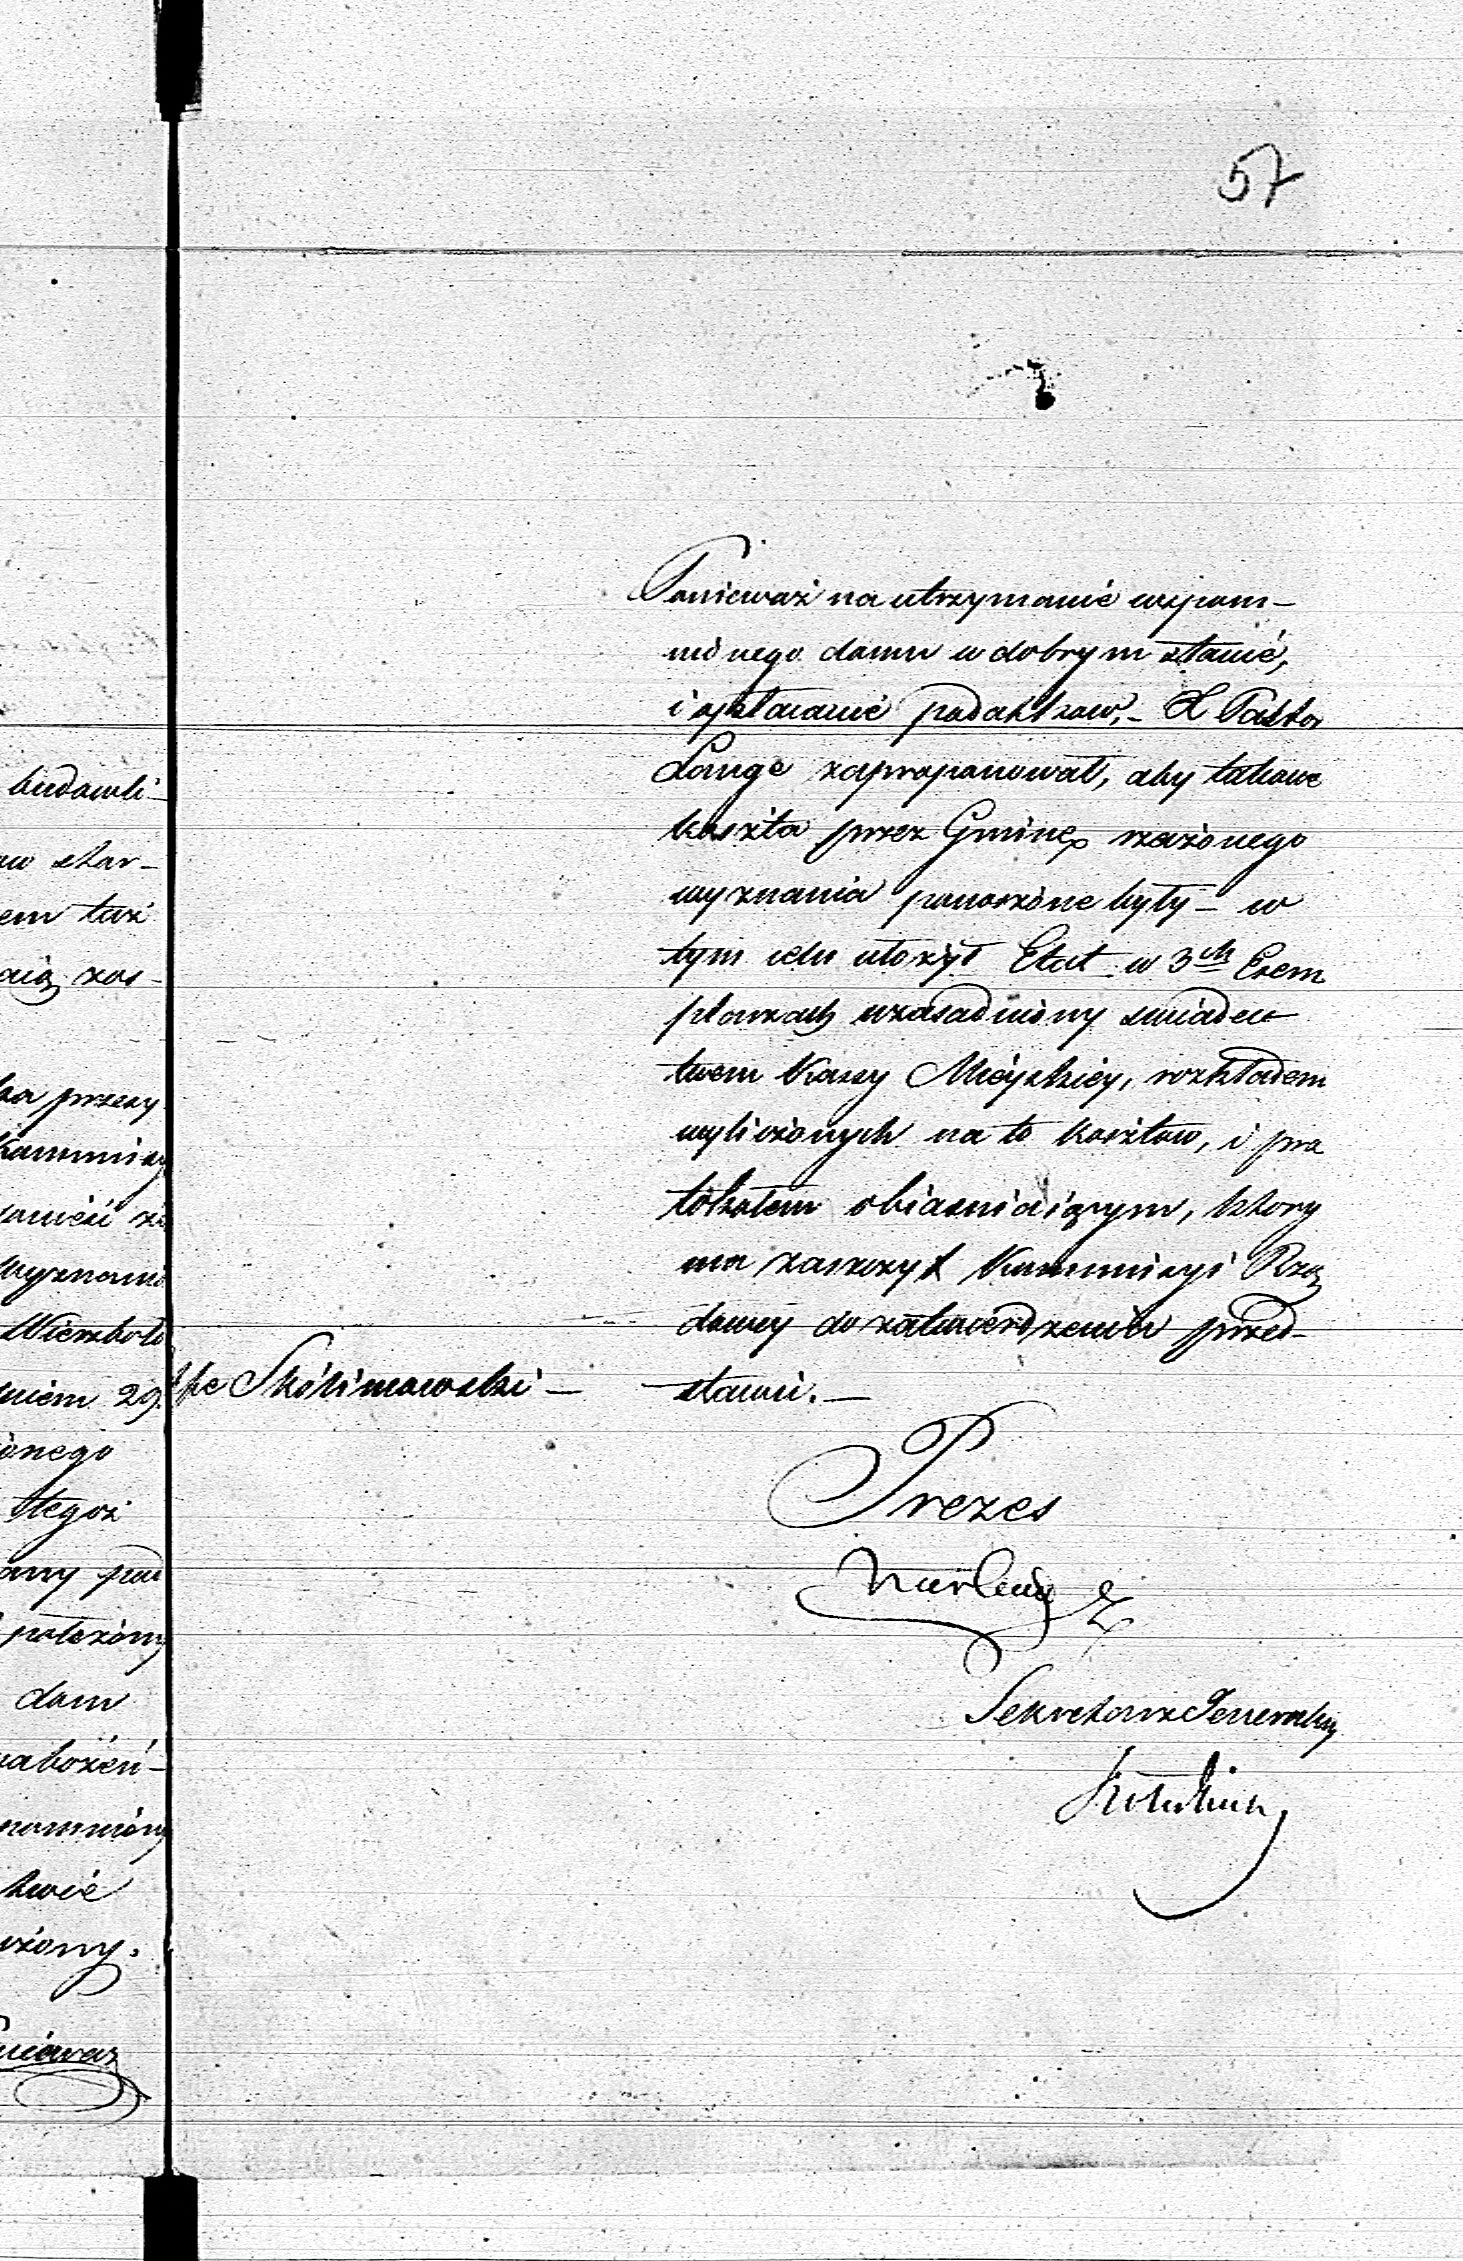 57
Ponieważ na utrzymanie wspom-
nionego domu w dobrym stanie,
i opłacanie podatkow,- X Pastor
Lange zaproponował, aby takowe
koszta przez Gminę rzeczonego
wyznania ponoszone były - w
tym celu ułożył Etat w 3ch Exem
plarzach uzasadniony swiadec
twem Kassy Mieyskiey, rozkładem
wyliczonych na to kosztow, i pro
tokołem obiasniaiącym, ktory
ma zaszczyt Kommissyi Rzą
dowey do zatwierdzenia przed-
stawić.-
Skolimowski -
Prezes
Sekretarz Generalny
budowli-
star-
em też
zos-
przesy
Kommissy
Wyznani
Wierzbolo
niem 29.
onego
tegoż
położony
dom
nabożeń-